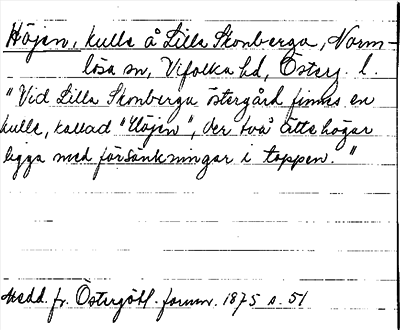 Höjen, kulle å Lilla Skonberga, Norm-
lösa sn, Vifolka hd, Österg. l.
"Vid Lilla Skonberga östergård finnes en
kulle, kallad "Höjen", der två ättehögar
ligga med försänkningar i toppen."
Medd. fr. Östergötl. fornm. 1875 s. 51